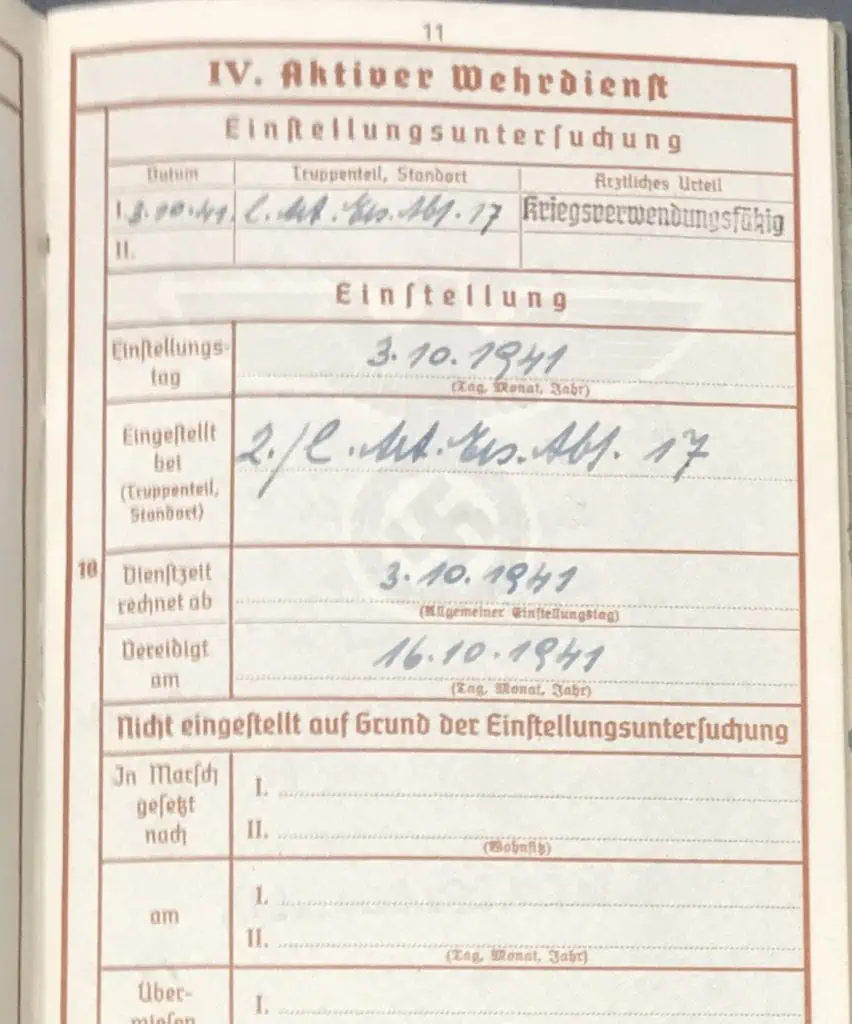 11
IV. Aktiver Wehrdienst
Einstellungsuntersuchung
Datum Truppenteil, Standort Ärztliches Urteil
I. 3.10.41. l. Art. Ers. Abt. 17 Kriegsverwendungsfähig
II.
Einstellung
Einstellungs-
tag
3.10.1941
(Tag, Monat, Jahr)
Eingestellt
bei
(Truppenteil,
Standort)
2./l. Art. Ers. Abt. 17
10
Dienstzeit
rechnet ab
3.10.1941
(Allgemeiner Einstellungstag)
Vereidigt
am
16.10.1941
(Tag, Monat, Jahr)
Nicht eingestellt auf Grund der Einstellungsuntersuchung
In Marsch
gesetzt
nach
I.
II.
(Wohnsitz)
am
I.
II.
(Tag, Monat, Jahr)
Über-
wiesen
I.